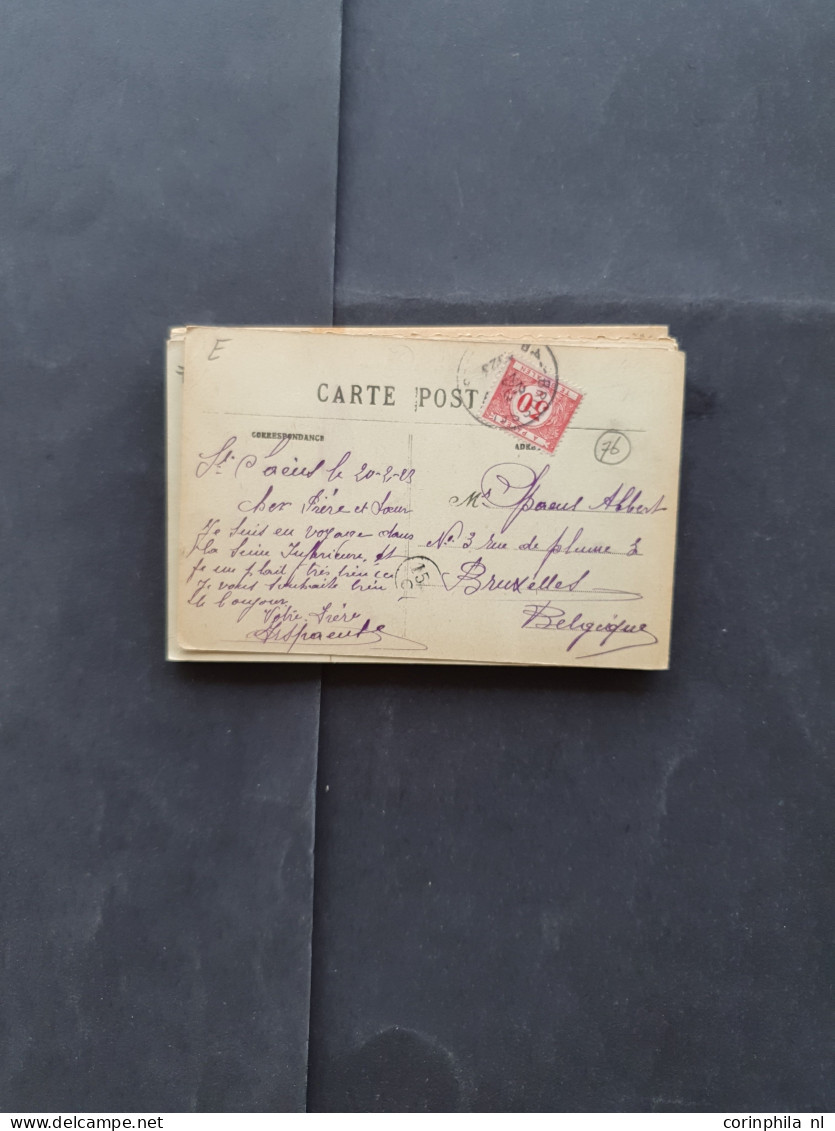 E
CARTE POST
CORRESPONDANCE
ADRE
50
76
St. Saëns le 20-2-23
Cher Frère et Sœur
Je suis en voyage dans
la Seine Inférieure, et
je me plait très bien
Je vous souhaite bien
le bonjour
Votre Frère
Mr. Spaens Albert
No. 3 rue de plume 3
Bruxelles
Belgique
15
C
corinphila nl